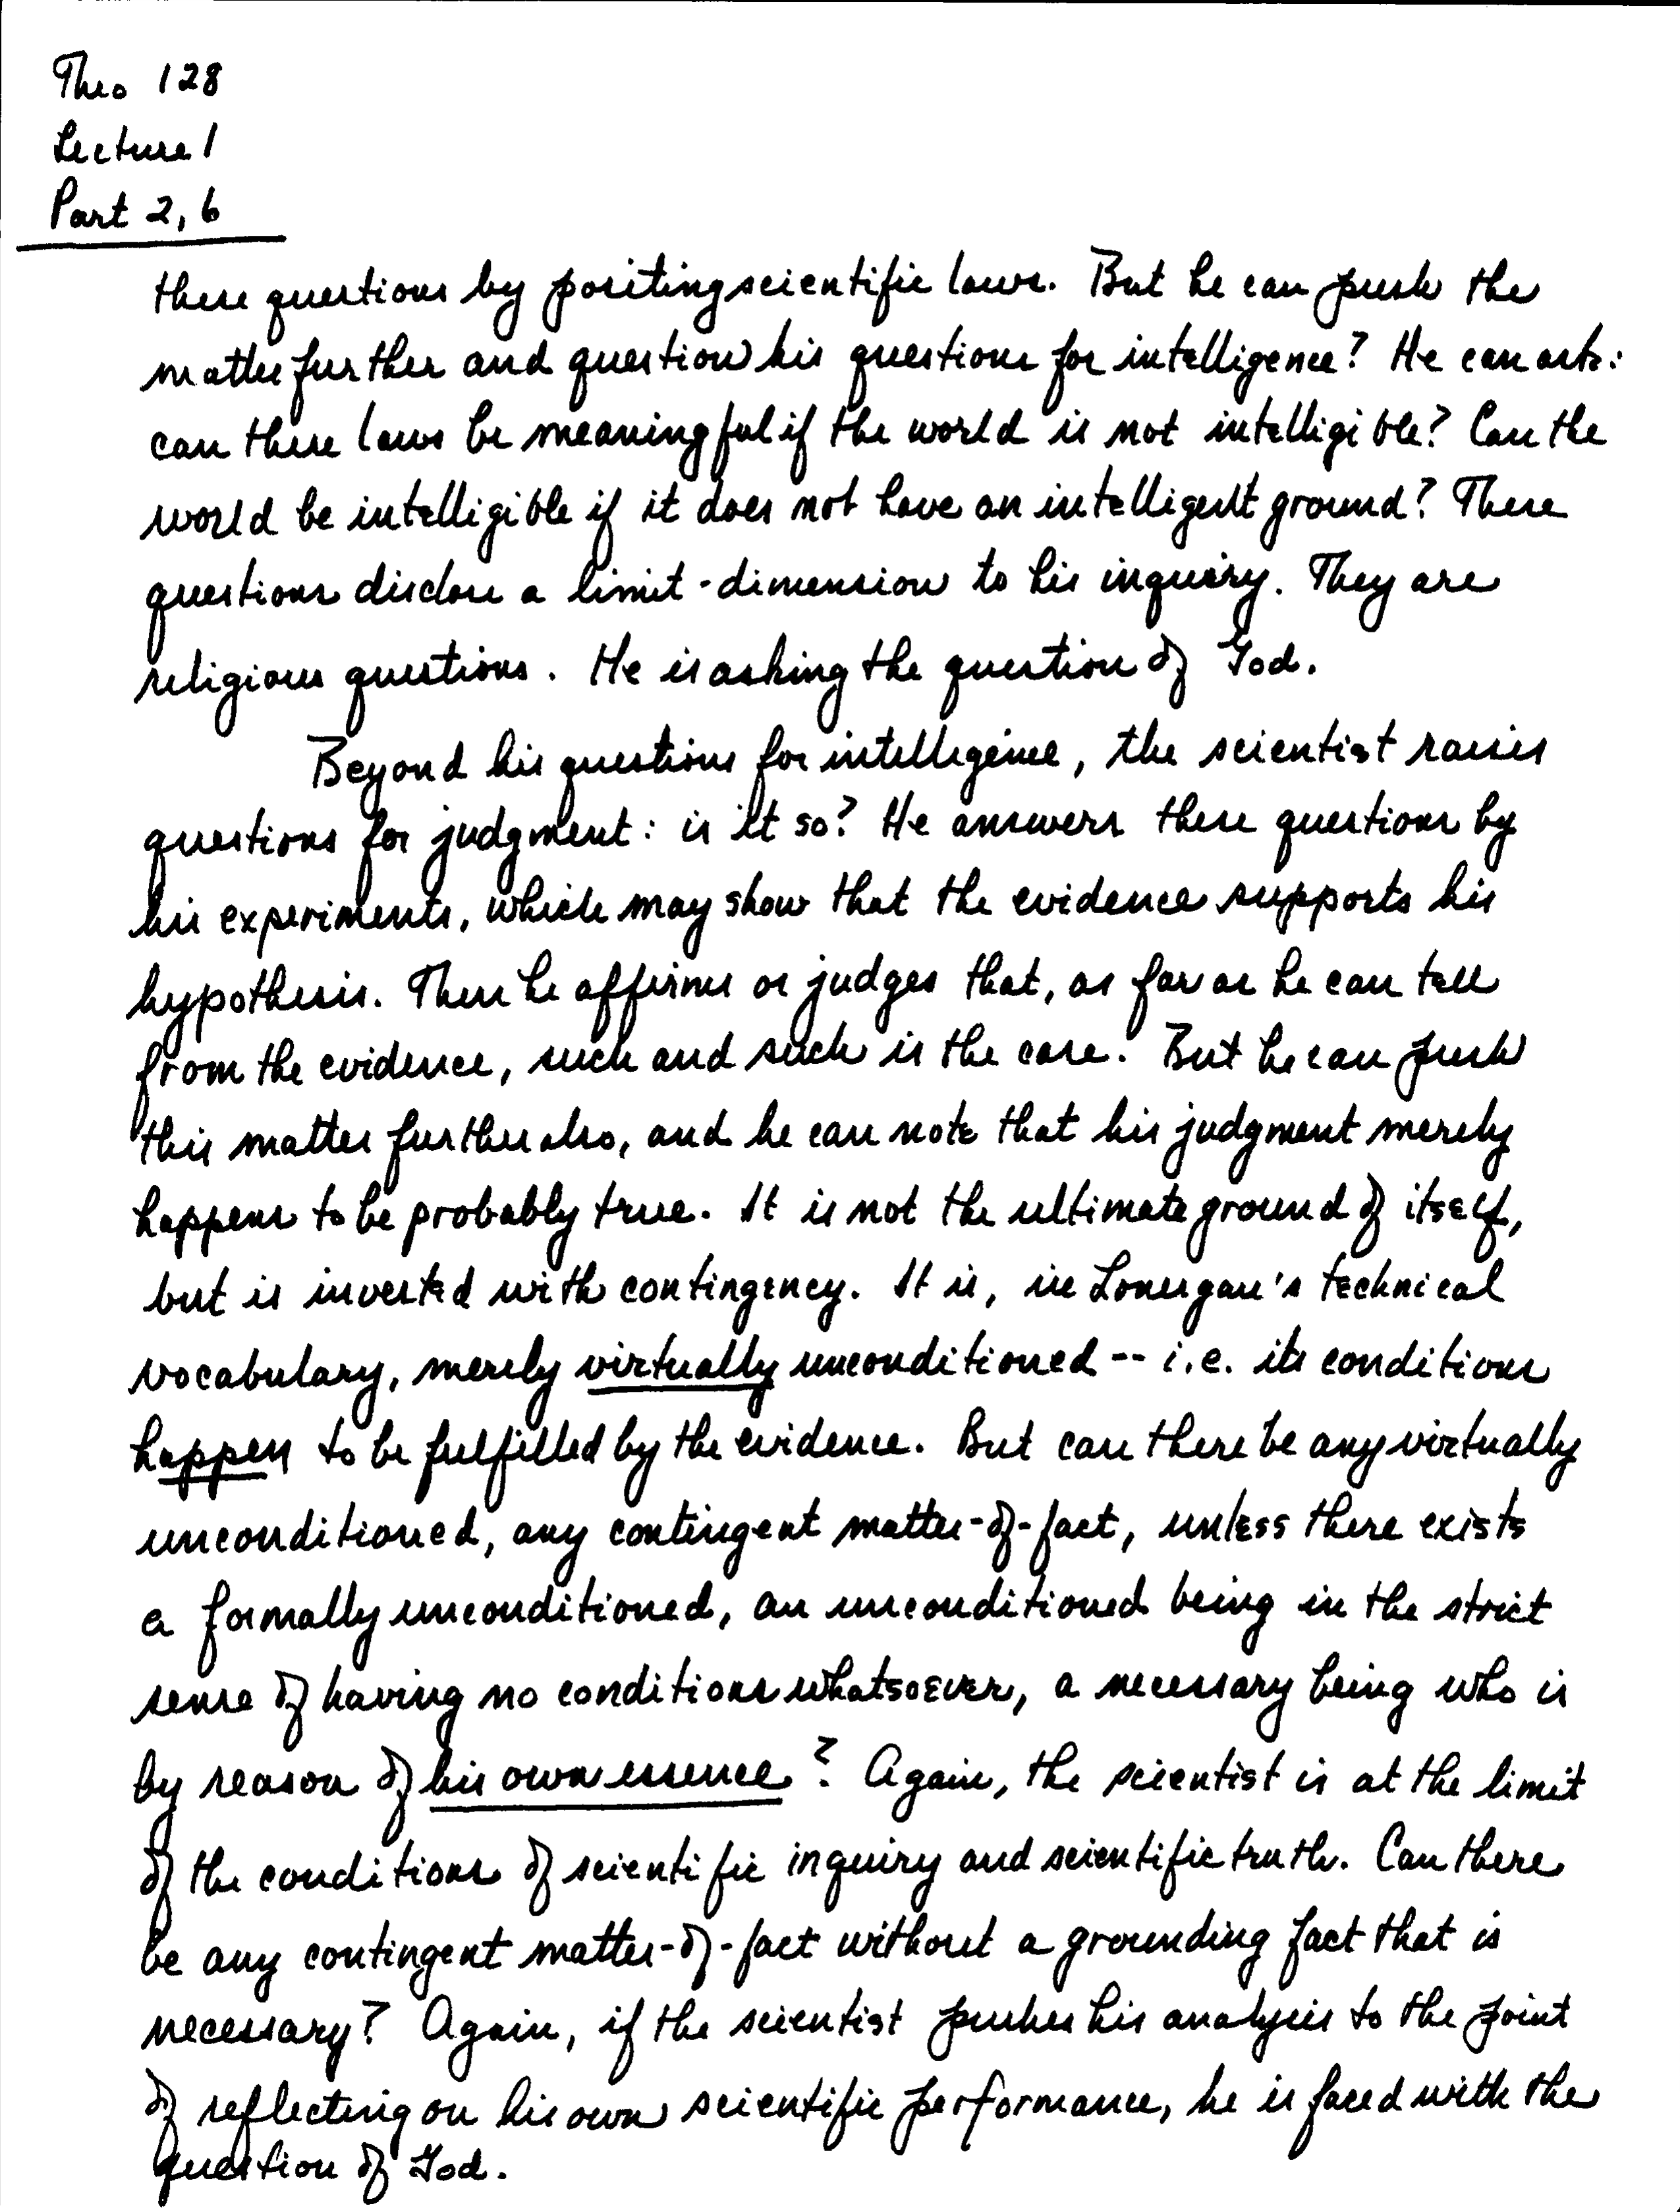 Theo 128
Lecture 1
Part 2, 6
these questions by positing scientific laws. But he can push the
matter further and question his questions for intelligence? He can ask:
can these laws be meaningful if the world is not intelligible? Can the
world be intelligible if it does not have an intelligent ground? These
questions disclose a limit-dimension to his inquiry. They are
religious questions. He is asking the question of God.
Beyond his questions for intelligence, the scientist raises
questions for judgment: is it so? He answers these questions by
his experiments, which may show that the evidence supports his
hypothesis. Then he affirms or judges that, as far as he can tell
from the evidence, such and such is the case. But he can push
this matter further also, and he can note that his judgment merely
happens to be probably true. It is not the ultimate ground of itself,
but is invested with contingency. It is, in Lonergan's technical
vocabulary, merely virtually unconditioned -- i.e. its conditions
happen to be fulfilled by the evidence. But can there be any virtually
unconditioned, any contingent matter-of-fact, unless there exists
a formally unconditioned, an unconditioned being in the strict
sense of having no conditions whatsoever, a necessary being who is
by reason of his own essence? Again, the scientist is at the limit
of the conditions of scientific inquiry and scientific truth. Can there
be any contingent matter-of-fact without a grounding fact that is
necessary? Again, if the scientist pushes his analysis to the point
of reflecting on his own scientific performance, he is faced with the
question of God.